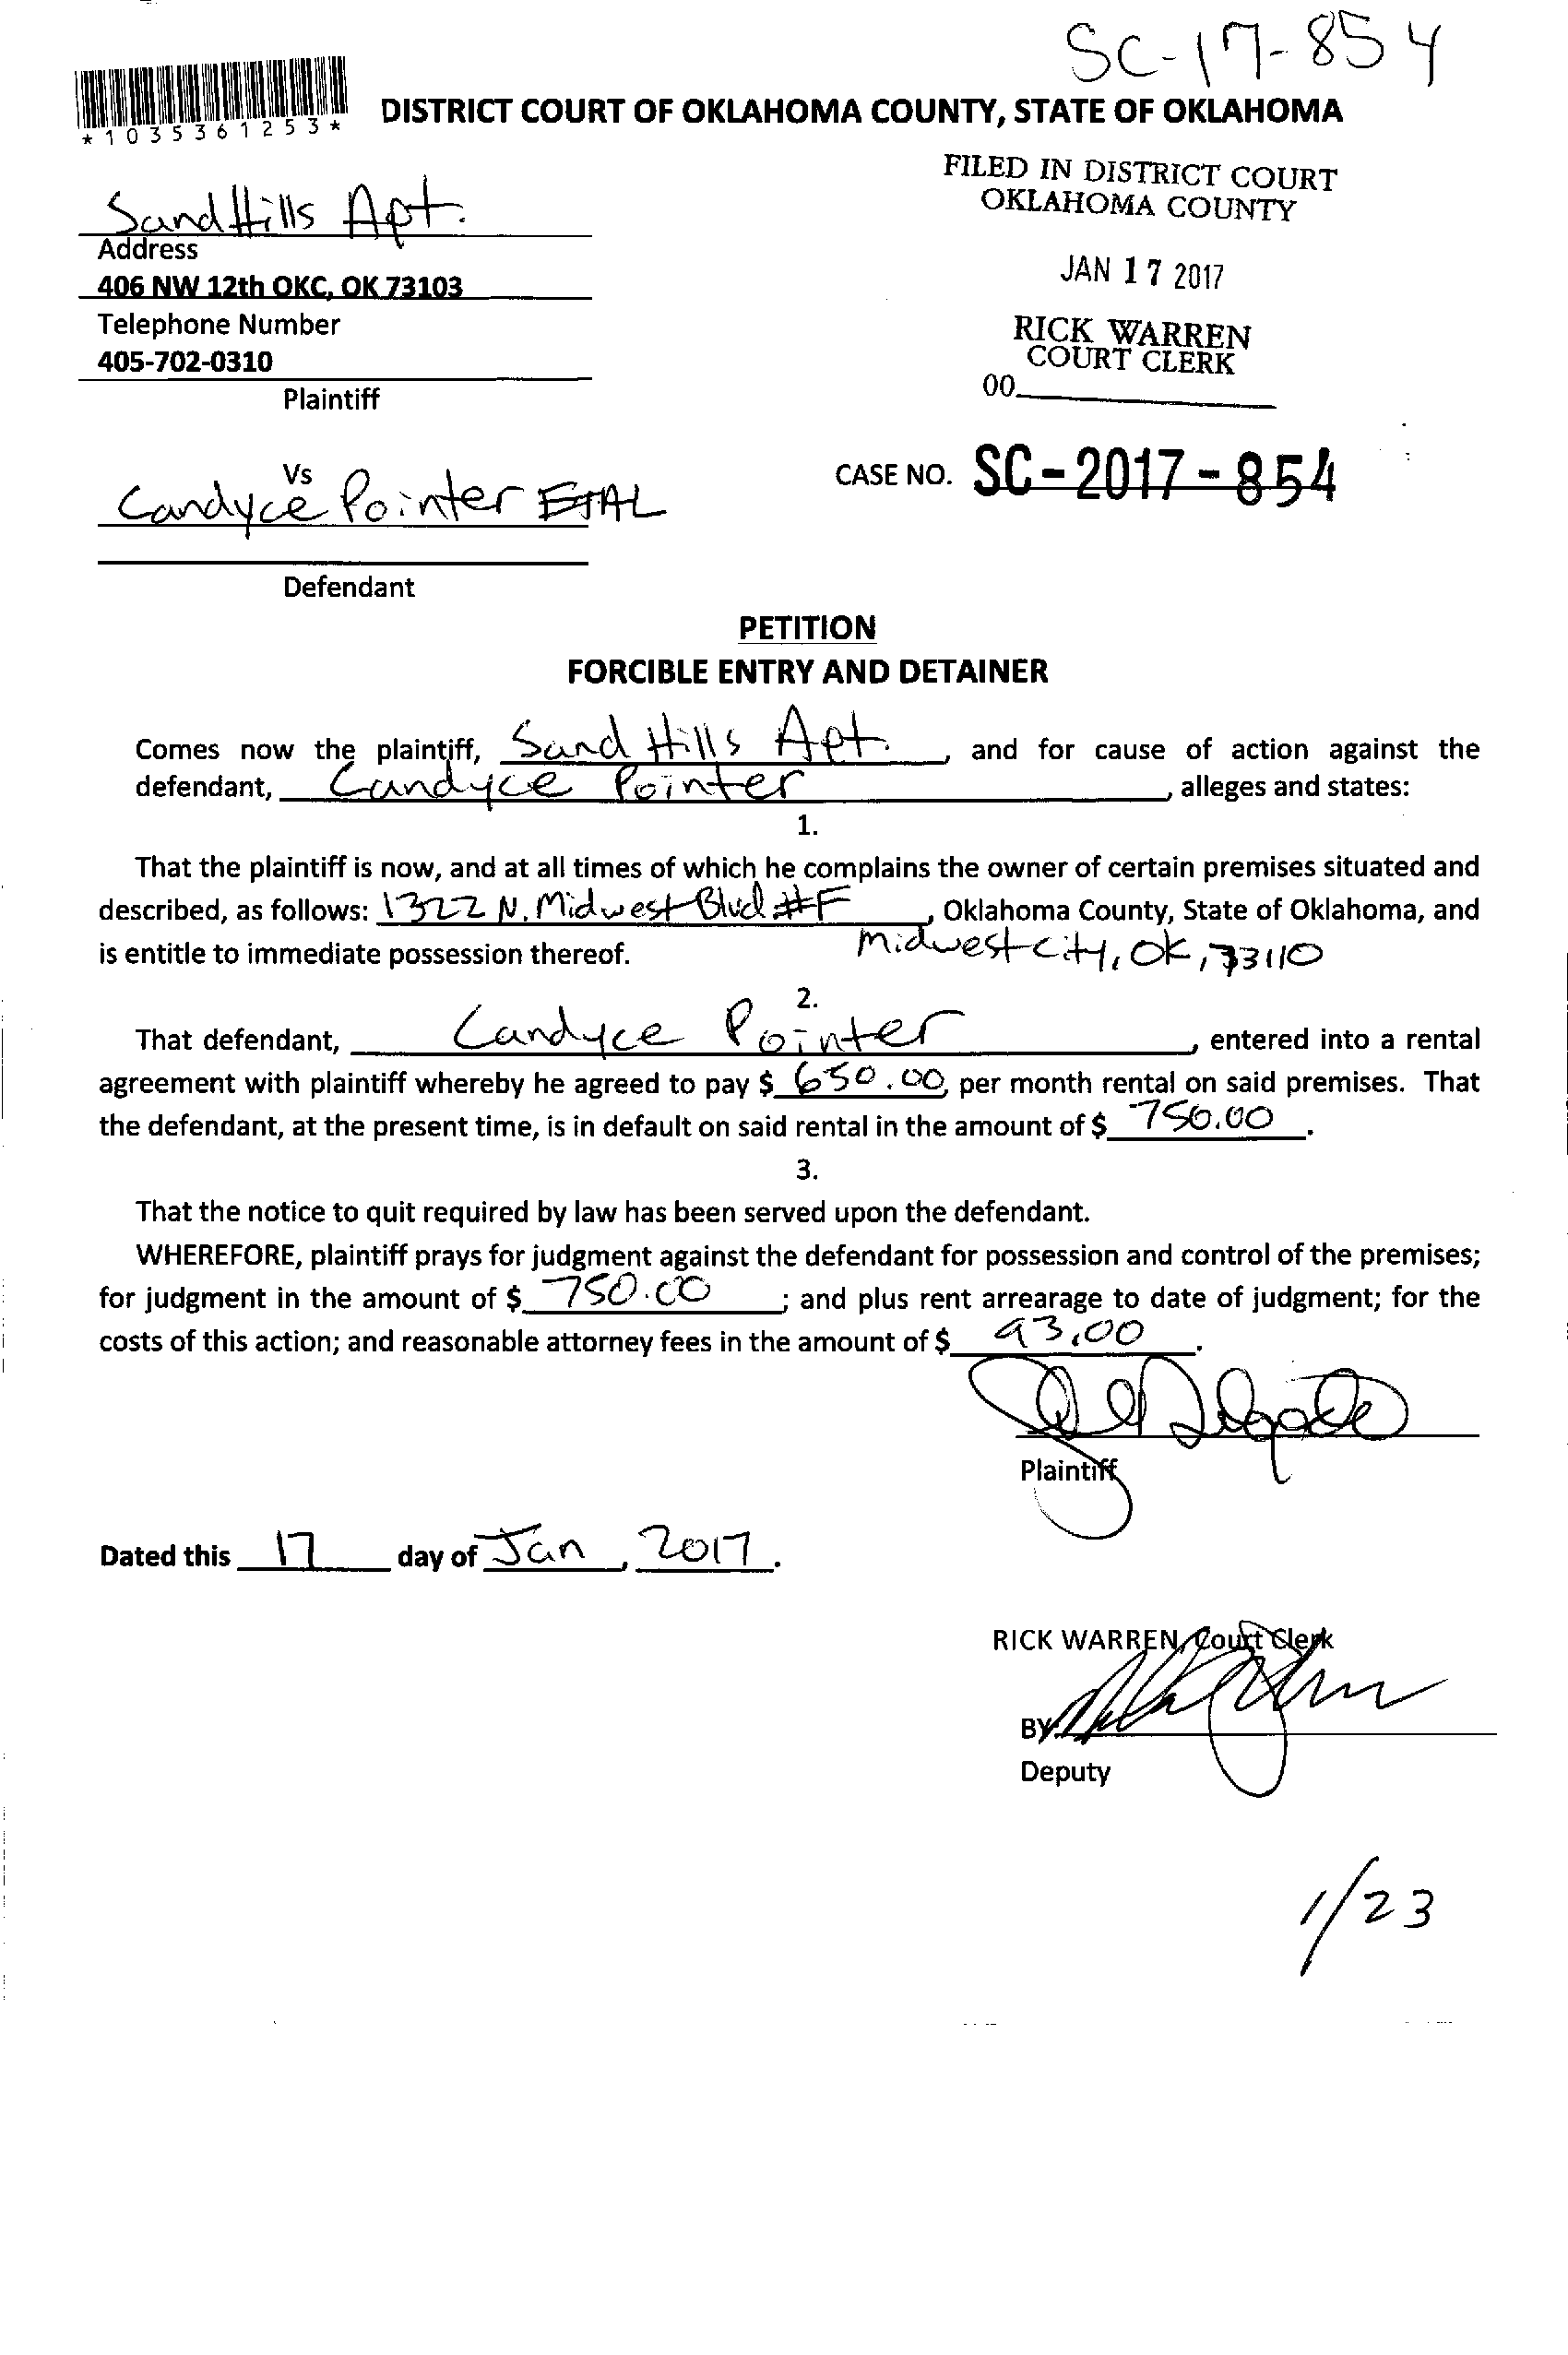 SC-17-854
*1035361253*
DISTRICT COURT OF OKLAHOMA COUNTY, STATE OF OKLAHOMA
FILED IN DISTRICT COURT
OKLAHOMA COUNTY
JAN 17 2017
RICK WARREN
COURT CLERK
00
Sand Hills Apt.
Address
406 NW 12th OKC, OK 73103
Telephone Number
405-702-0310
Plaintiff
Vs
CASE NO. SC-2017-854
Candyce Pointer ETAL
Defendant
PETITION
FORCIBLE ENTRY AND DETAINER
Comes now the plaintiff, Sand Hills Apt. , and for cause of action against the
defendant, Candyce Pointer , alleges and states:
1.
That the plaintiff is now, and at all times of which he complains the owner of certain premises situated and
described, as follows: 1322 N. Midwest Blvd #F , Oklahoma County, State of Oklahoma, and
is entitle to immediate possession thereof. Midwest city, OK, 73110
2.
That defendant, Candyce Pointer , entered into a rental
agreement with plaintiff whereby he agreed to pay $ 650.00, per month rental on said premises. That
the defendant, at the present time, is in default on said rental in the amount of $ 750.00 .
3.
That the notice to quit required by law has been served upon the defendant.
WHEREFORE, plaintiff prays for judgment against the defendant for possession and control of the premises;
for judgment in the amount of $ 750.00 ; and plus rent arrearage to date of judgment; for the
costs of this action; and reasonable attorney fees in the amount of $ 93.00 .
Plaintiff
Dated this 17 day of Jan , 2017 .
RICK WARREN, Court Clerk
BY
Deputy
1/23